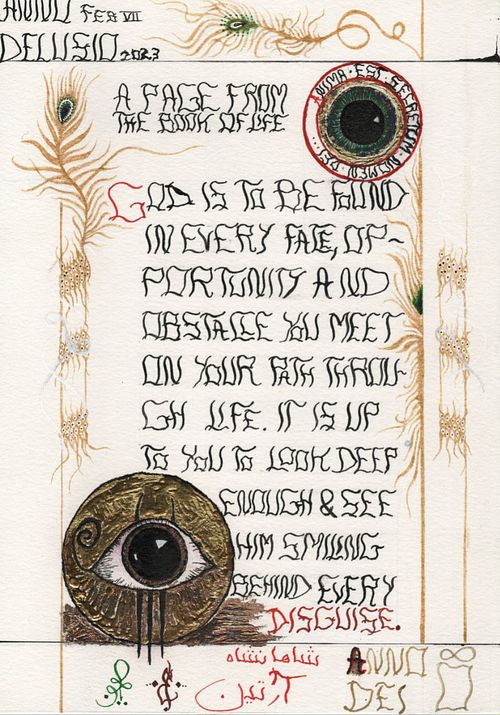 FEB VII
DELUSIO 2023
A PAGE FROM
THE BOOK OF LIFE
ANIMA · EST · SECRETUM · NOMEN · DEI...
GOD IS TO BE FOUND
IN EVERY FACE, OP~
PORTUNITY AND
OBSTACLE YOU MEET
ON YOUR PATH THROU-
GH LIFE. IT IS UP
TO YOU TO LOOK DEEP
ENOUGH & SEE
HIM SMILING
BEHIND EVERY
DISGUISE.
شاهانشاه
آرتین
ANNO
DEI